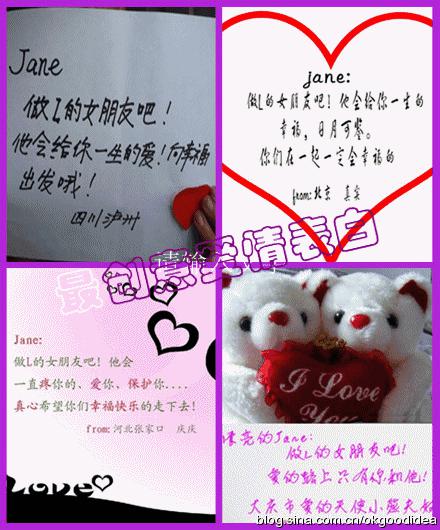 Jane
做L的女朋友吧！
他会给你一生的爱！向幸福
出发哦！
四川泸州
jane:
做L的女朋友吧！他会给你一生的
幸福，日月可鉴。
你们在一起一定会幸福的
from:北京 真实
最创意爱情表白
Jane:
做L的女朋友吧！他会
一直疼你的、爱你、保护你....
真心希望你们幸福快乐的走下去！
from:河北张家口 庆庆
Love
I Love
You
漂亮的Jane:
做L的女朋友吧！
爱的路上只有你和他！
大庆市爱的天使小薇天
blog.sina.com.cn/okgoodidea